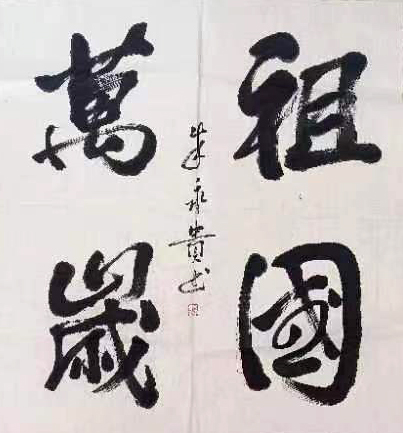 祖國
萬歲
朱永貴书